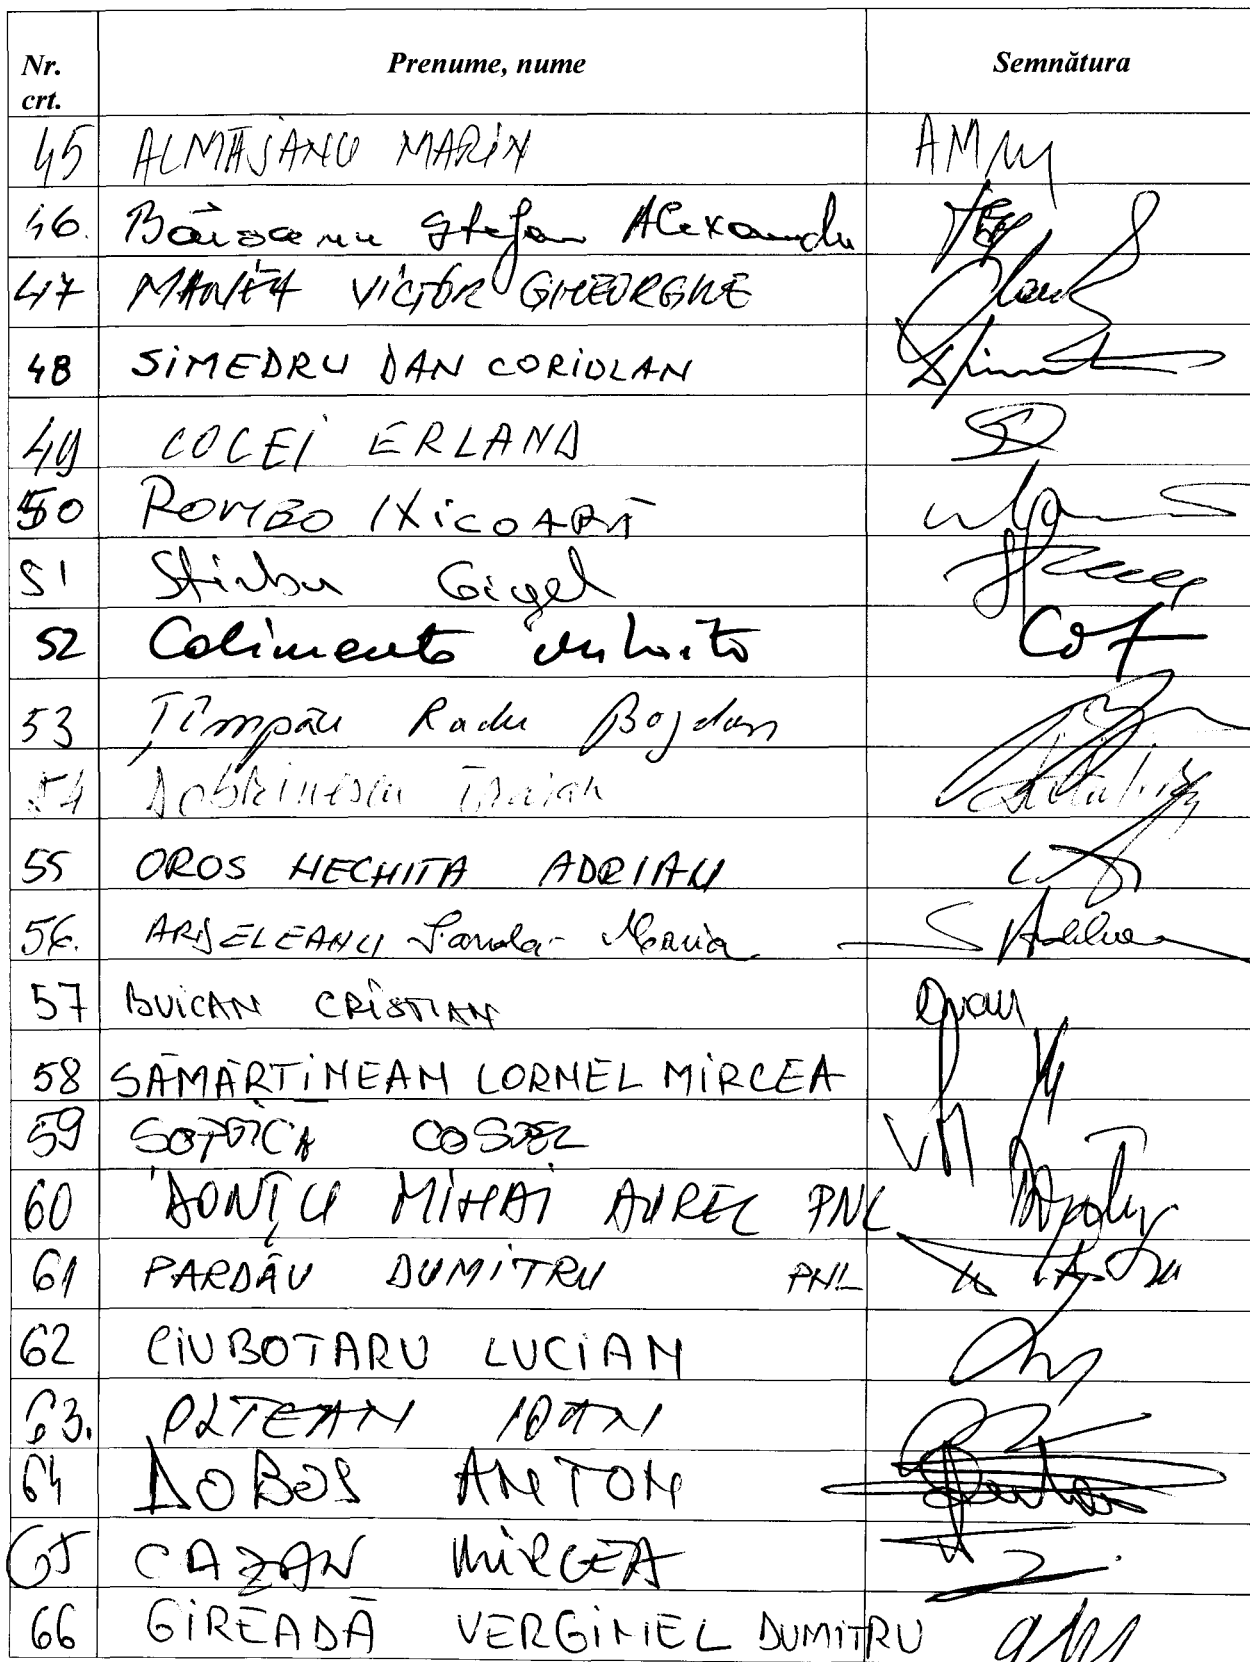 Nr. crt. Prenume, nume Semnătura
45 ALMĂJANU MARIN
46. Băișanu Ștefan Alexandru
47 MANEA VICTOR GHEORGHE
48 SIMEDRU DAN CORIOLAN
49 COCEI ERLAND
50 ROMEO
51 Știrbu Gigel
52 Calimente
53 Țîmpău Radu Bogdan
54 Dobrinescu Traian
55 OROS NECHITA ADRIAN
56. ARDELEANU Sanda-Maria
57 BUICAN CRISTIAN
58 SĂMĂRTINEAN CORNEL MIRCEA
59 COSTEL
60 DONȚU MIHAI AUREL PNL
61 PARDĂU DUMITRU PNL
62 CIUBOTARU LUCIAN
63. OLTEAN IOAN
64 DOBOS ANTON
65 CAZAN MIRCEA
66 GIREADĂ VERGINEL DUMITRU